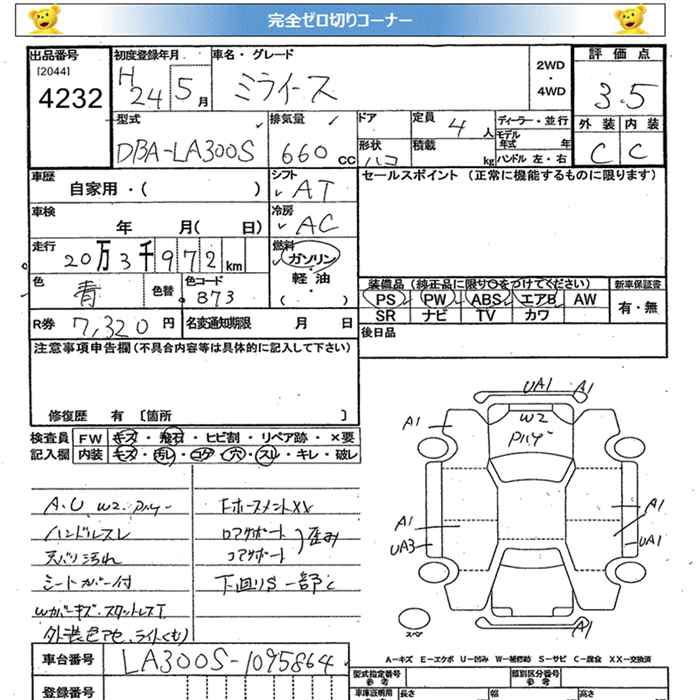 完全ゼロ切りコーナー
出品番号
[2044]
4232
初度登録年月
H 24 5 月
車名・グレード
ミライース
2WD
・
4WD
評価点
3.5
外装 内装
C C
型式
DBA-LA300S
排気量
660 CC
ドア
形状
ハコ
定員 4 人
積載 kg
ディーラー・並行
モデル年式 年
ハンドル 左・右
車歴
自家用・( )
シフト
AT
セールスポイント (正常に機能するものに限ります)
車検
年 月( 日)
冷房
AC
走行
20万3千972km
燃料
ガソリン
軽油
( )
色
青
色替
色コード
B73
装備品 (純正品に限り○をつけてください)
新車保証書
PS PW ABS エアB AW
SR ナビ TV カワ
有・無
R券 7,320 円
名変通知期限 月 日
後日品
注意事項申告欄 (不具合内容等は具体的に記入して下さい)
修復歴 有 〔箇所 〕
検査員 FW キズ・飛石・ヒビ割・リペア跡・×要
記入欄 内装 キズ・汚レ・コゲ・穴・スレ・キレ・破レ
A.U W2 アハゲー
ハンドルスレ
天バリ汚れ
シートカバー付
外装色アセ、ライトくもり
FホースメントXX
ロアサポート
コアサポート
歪み
下回りS一部C
UA1 A1
W2
アハゲー
A1
A1
UA3
A1
UA1
A1
スペア
A-キズ E-エクボ U-凹み W-補修跡 S-サビ C-腐食 XX-交換済
車台番号
LA300S-1095864
登録番号
型式指定番号
参考
類別区分番号
参考
車庫証明用
参考
長さ
幅
高さ